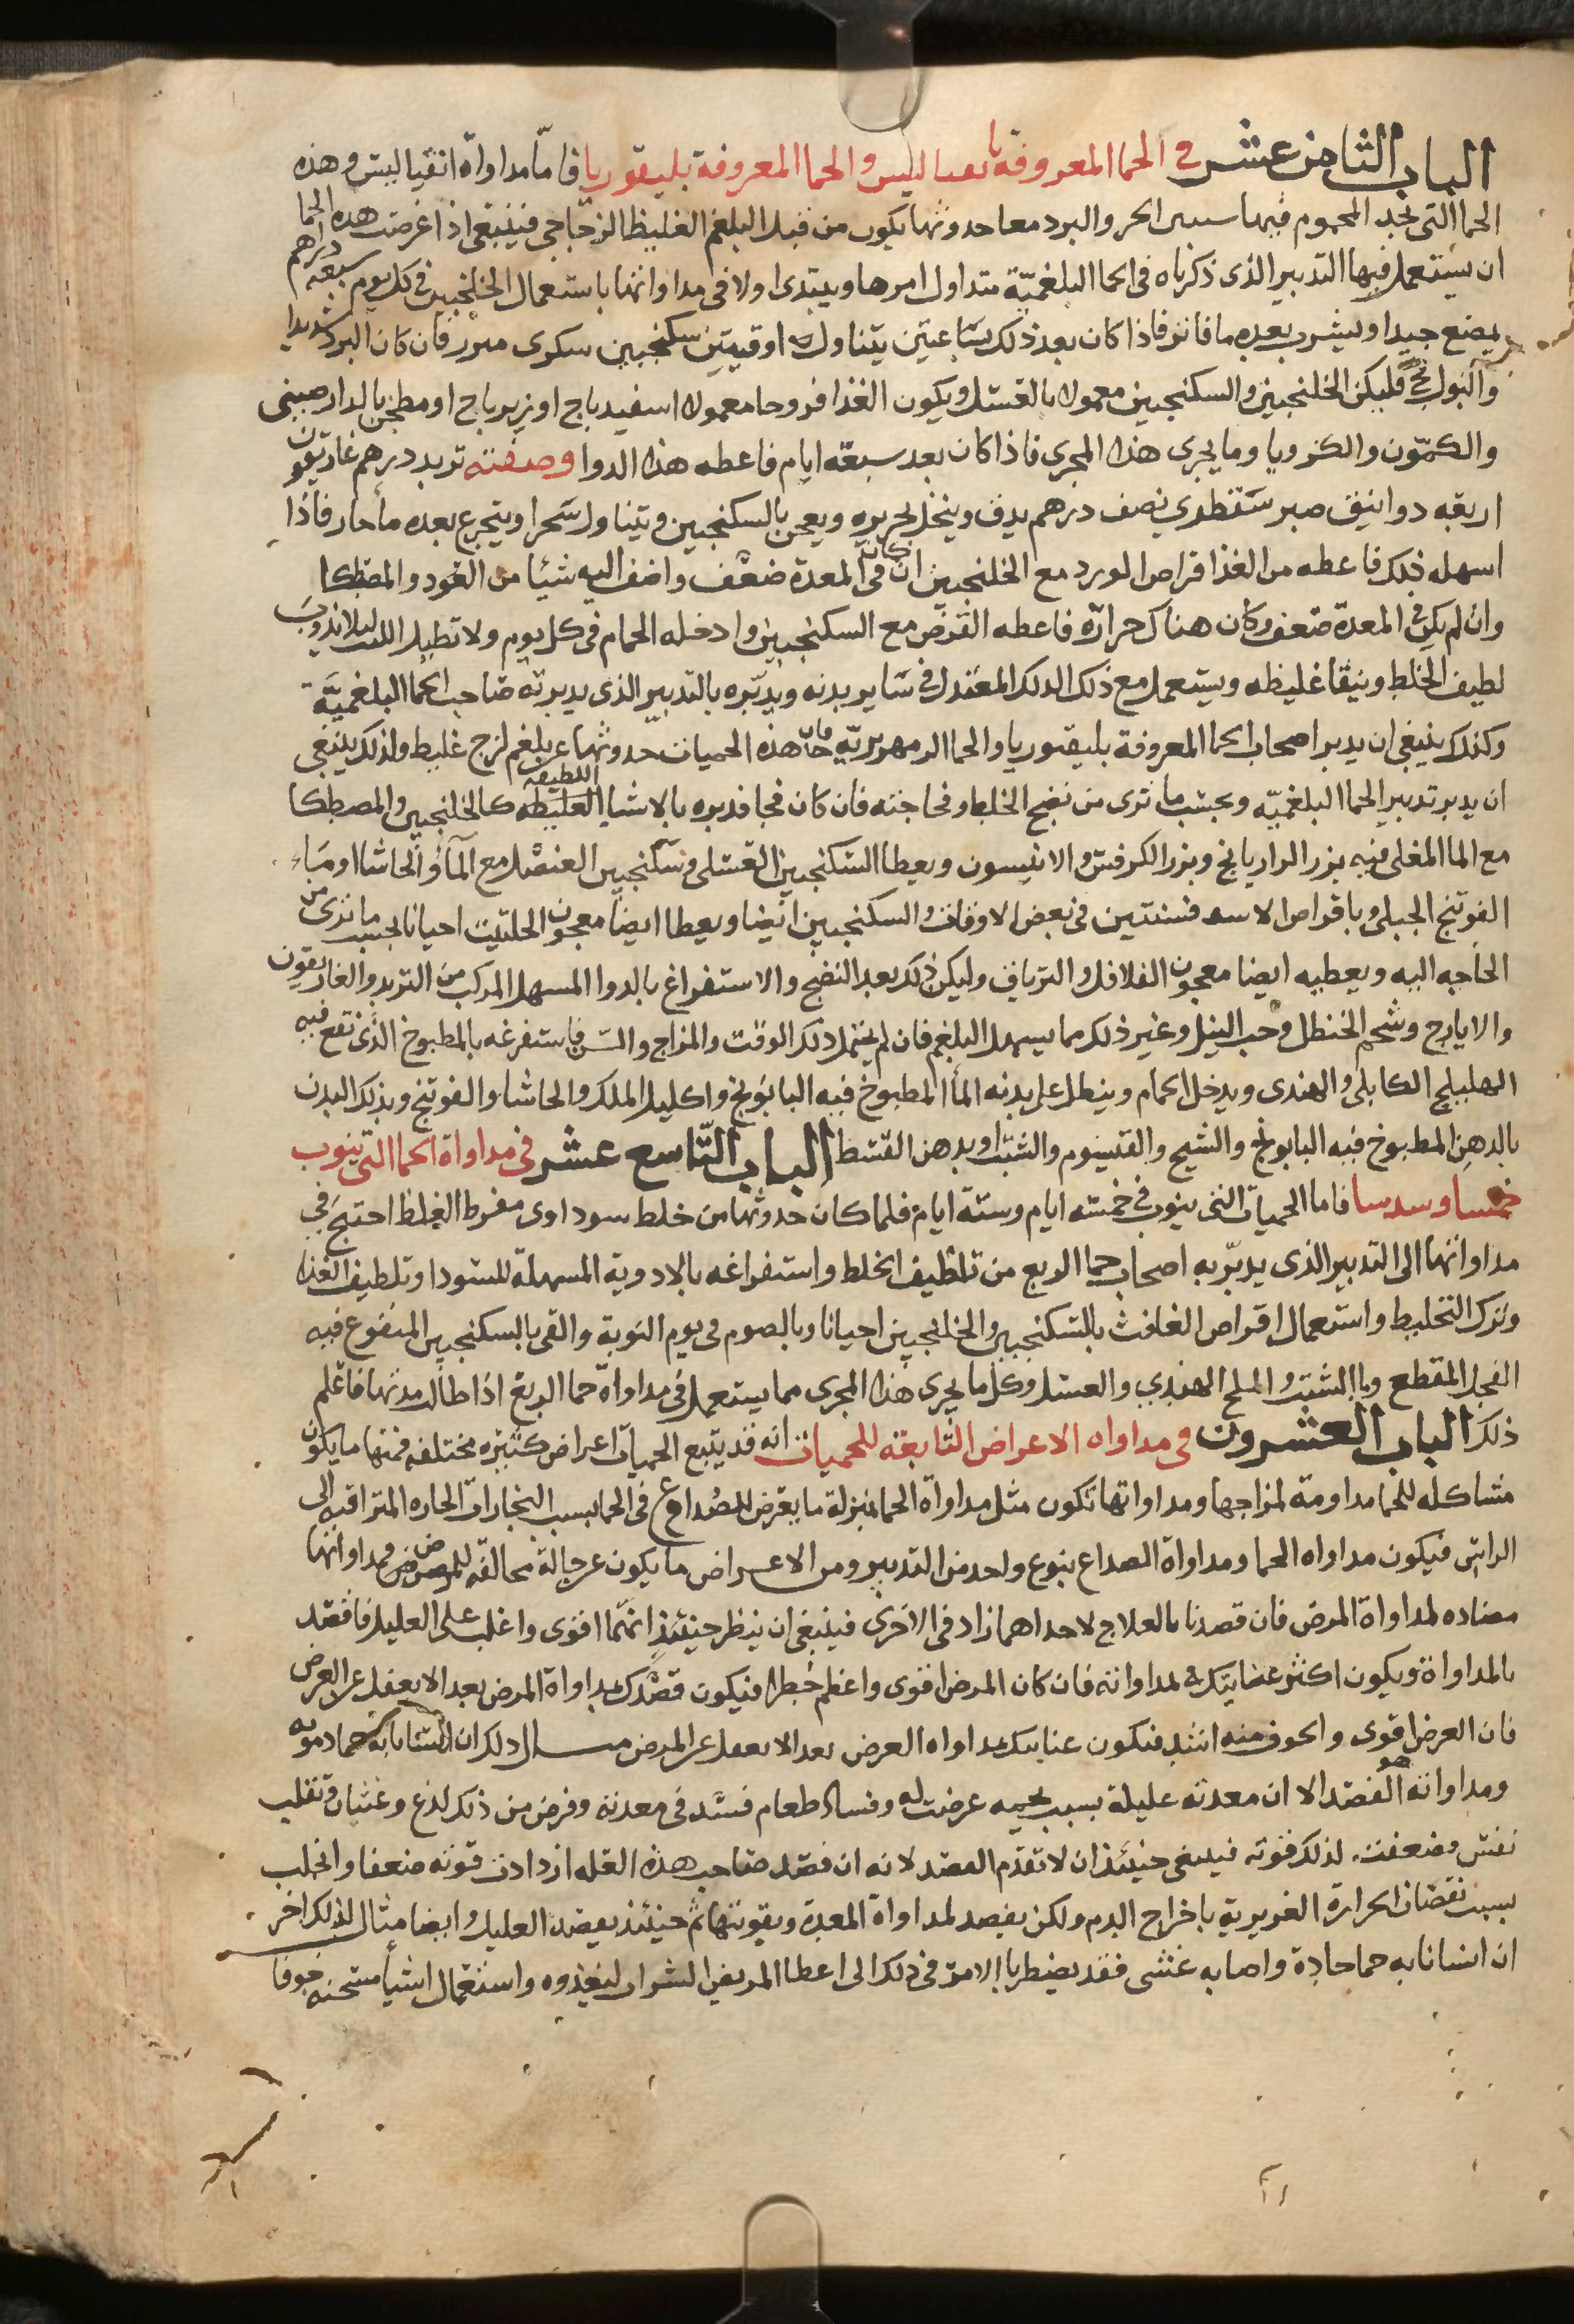 الباب الثامن عشر في الحما المعروفة بانفيالس والحما المعروفة بليقوريا فاما مداواة انفيالس وهذه
الحما التي يجد المحموم فيها مس الحر والبرد معا حدوثها يكون من قبل البلغم الغليظ الزجاجي فينبغي اذا عرضت هذه الحما
ان يستعمل فيها التدبير الذي ذكرناه في الحما البلغمية متداول امرها ويبتدي اولا في مداواتها باستعمال الخلنجبين في كل يوم سبعة دراهم
يمضغ جيدا ويشرب بعده ما فاتر فاذا كان بعد ذلك ساعتين يتناول اوقيتين سكنجبين سكري مبزر فان كان البرد شديدا
والبول فج فليكن الخلنجبين والسكنجبين معمولا بالعسل ويكون الغذا فروحا معمولا اسفيدباج او زيرباج او مطجن بالدارصيني
والكمون والكرويا وما يجري هذا المجرى فاذا كان بعد سبعة ايام فاعطه هذا الدوا وصفته تربد درهم غاريقون
اربعة دوانيق صبر سقطري نصف درهم يدق وينخل بحريره ويعجن بالسكنجبين ويتناول سحرا ويتجرع بعده ما حار فاذا
اسهله ذلك فاعطه من الغذا قراص الورد مع الخلنجبين ان كان في المعدة ضعف واضف اليه شيئا من العود والمصطكا
وان لم يكن في المعدة ضعف وكان هناك حرارة فاعطه القرص مع السكنجبين وادخله الحمام في كل يوم ولا تطيل اللبث ليلا يذوب
لطيف الخلط ويبقا غليظه ويستعمل مع ذلك الدلك المعتدل في ساير بدنه ويدبره بالتدبير الذي يدبر به صاحب الحما البلغمية
وكذلك ينبغي ان يدبر اصحاب الحما المعروفة بليقوريا والحما الزمهريرية فان هذه الحميات حدوثها عن بلغم لزج غليظ ولذلك ينبغي
ان يدبر تدبير الحما البلغمية وبحسب ما ترى من نضج الخلط وفجاجته فان كان فجا فدبره بالاشيا الغليظه اللطيفه كالخلنجبين والمصطكا
مع الما المغلي فيه بزر الرازيانج وبزر الكرفس والانيسون ويعطا السكنجبين العسلي وسكنجبين العنصل مع الما والحاشا او ماء
الفوتنج الجبلي وباقراص الافسنتين في بعض الاوقات والسكنجبين ايضا ويعطا ايضا معجون الحلتيت احيانا بحسب ما ترى من
الحاجه اليه ويعطيه ايضا معجون الفلافل والترياق وليكن ذلك بعد النضج والاستفراغ بالدوا المسهل المركب من التربد والغاريقون
والايارج وشحم الحنظل وحب النيل وغير ذلك مما يسهل البلغم فان لم يحتمل ذلك الوقت والمزاج والسن فاستفرغه بالمطبوخ الذي تقع فيه
الهليلج الكابلي والهندي ويدخل الحمام وينطل على بدنه الما المطبوخ فيه البابونج واكليل الملك والحاشا والفوتنج ويدلك البدن
بالدهن المطبوخ فيه البابونج والشيح والقيسوم والشبت او بدهن القسط الباب التاسع عشر في مداواة الحما التي تنوب
خمسا وسدسا فاما الحميات التي ينوب في خمسة ايام وستة ايام فلما كان حدوثها من خلط سوداوي مفرط الغلظ احتج في
مداواتها الى التدبير الذي يدبر به اصحاب حما الربع من تلطيف الخلط واستفراغه بالادوية المسهلة للسودا وتلطيف الغذا
وترك التخليط واستعمال اقراص الغافث بالسكنجبين والخلنجبين احيانا وبالصوم في يوم النوبة والقي بالسكنجبين المنقوع فيه
الفجل المقطع وبالشبت والملح الهندي والعسل وكل ما يجري هذا المجرى مما يستعمل في مداواة حما الربع اذا طالت مدتها فاعلم
ذلك الباب العشرون في مداواه الاعراض التابعة للحميات انه قد يتبع الحميات اعراض كثيره مختلفه فمنها ما يكون
مشاكله للحما مداومة لمزاجها ومداواتها تكون مثل مداواة الحما بمنزلة ما يعرض للصداع في الحما بسبب البخارات الحاره المتراقيه الى
الراس فيكون مداواه الحما ومداواة الصداع بنوع واحد من التدبير ومن الاعراض ما يكون عن حالة مخالفه للمرض ومداواتها
مضاده لمداواة المرض فان قصدنا بالعلاج لاحداهما زاد في الاخرى فينبغي ان ينظر حينئذ ايهما اقوى واغلب على العليل فاقصد
بالمداواة ويكون اكثر عنايتك لمداواته فان كان المرض اقوى واعظم خطرا فيكون قصدك بمداواة المرض بعد الا يغفل عن العرض
فان العرض اقوى والخوف منه اشد فتكون عنايتك بمداواه العرض بعد الا يغفل عن المرض مثال ذلك ان انسانا به حما دمويه
ومداواته هو الفصد الا ان معدته عليلة بسبب تخمه عرضت له وفساد طعام فسد في معدته وفرض من ذلك لذع وغثيان وتقلب
نفس فضعفت لذلك قوته فينبغي حينئذ ان لا تقدم الفصد لانه ان فصد صاحب هذه العله ازدادت قوته ضعفا وانحلت
بسبب نقصان الحرارة الغريزية باخراج الدم ولكن يقصد لمداواة المعدة وتقويتها ثم حينئذ يفصد العليل وايضا مثال لذلك اخر
ان انسانا به حما حادة واصابه غشي فقد يضطر بالامر في ذلك الى اعطا المريض الشراب ليغذوه واستعمال اشيا مسخنه خوفا